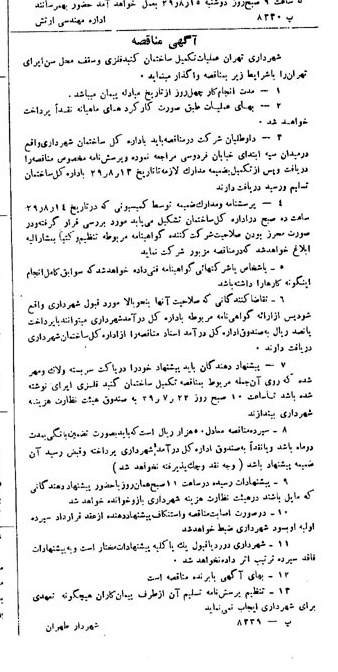 ساعت ۹ صبح روز دوشنبه ۲۹ر۸ر۱۵ بعمل خواهد آمد حضور بهمرسانند
پ ۸۴۳۰ اداره مهندسی ارتش
آگهی مناقصه
شهرداری تهران عملیات تکمیل ساختمان گنبد فلزی وسقف محل سن اپرای
تهران را باشرایط زیر بمناقصه واگذار مینماید
۱ – مدت انجام کار چهل روز از تاریخ مبادله پیمان میباشد .
۲ – بهای عملیات طبق صورت کارکرد های ماهیانه نقداً پرداخت
خواهد شد .
۳ – داوطلبان شرکت در مناقصه باید باداره کل ساختمان شهرداری واقع
در میدان سپه ابتدای خیابان فردوسی مراجعه نموده وپرسش نامه مخصوص مناقصه را
دریافت وپس از تکمیل بضمیمه مدارک لازمه تا تاریخ ۲۹ر۸ر۱۳ باداره کل ساختمان
تسلیم ورسید دریافت دارند
۴ – پرسشنامه ومدارک ضمیمه توسط کمیسیونی که در تاریخ ۲۹ر۸ر۱۴
ساعت ده صبح در اداره کل ساختمان تشکیل می‌یابد مورد بررسی قرار گرفته ودر
صورت محرز بودن صلاحیت شرکت کننده گواهینامه مربوطه تنظیم و کتباً بمشارالیه
ابلاغ خواهد شد که در مناقصه مزبور شرکت نماید
۵ – باشخاص یا شرکتهائی گواهینامه فنی داده خواهد شد که سوابق کامل انجام
اینگونه کارها را داشته باشد
۶ – تقاضا کنندگانی که صلاحیت آنها بنحو بالا مورد قبول شهرداری واقع
شود پس از ارائه گواهی نامه مربوطه باداره کل درآمد شهرداری میتوانند با پرداخت
پانصد ریال به صندوق اداره کل درآمد اسناد مناقصه را از اداره کل ساختمان شهرداری
دریافت دارند .
۷ – پیشنهاد دهندگان باید پیشنهاد خود را در پاکت سربسته ولاک ومهر
شده که روی آن جمله مربوط بمناقصه تکمیل ساختمان گنبد فلزی اپرای نوشته
شده باشد تا ساعت ۱۰ صبح روز ۲۹ر۷ر۲۲ به صندوق هیئت نظارت هزینه
شهرداری بیندازند
۸ – سپرده مناقصه معادل ۵۰ هزار ریال است که باید بصورت تضمین بانکی بمدت
دوماه باشد ویا نقداً بصندوق اداره کل درآمد شهرداری پرداخت وقبض رسید آن
ضمیمه پیشنهاد باشد ( وجه نقد وچک پذیرفته نخواهد شد )
۹ – پیشنهادات رسیده در ساعت ۱۱ صبح همان روز با حضور پیشنهاد دهندگانی
که مایل باشند در هیئت نظارت هزینه شهرداری باز و خوانده خواهد شد
۱۰ – در صورت اصابت مناقصه واستنکاف پیشنهاد دهنده از عقد قرارداد سپرده
اولیه او بسود شهرداری ضبط خواهد شد
۱۱ – شهرداری در رد یا قبول یک یا کلیه پیشنهادات مختار است و به پیشنهادات
فاقد سپرده ترتیب اثر داده نخواهد شد .
۱۲ – بهای آگهی با برنده مناقصه است
۱۳ – تنظیم پرسش نامه تسلیم آن از طرف پیمان کاران هیچگونه تعهدی
برای شهرداری ایجاب نمی نماید
پ – ۸۴۳۹ شهردار طهران